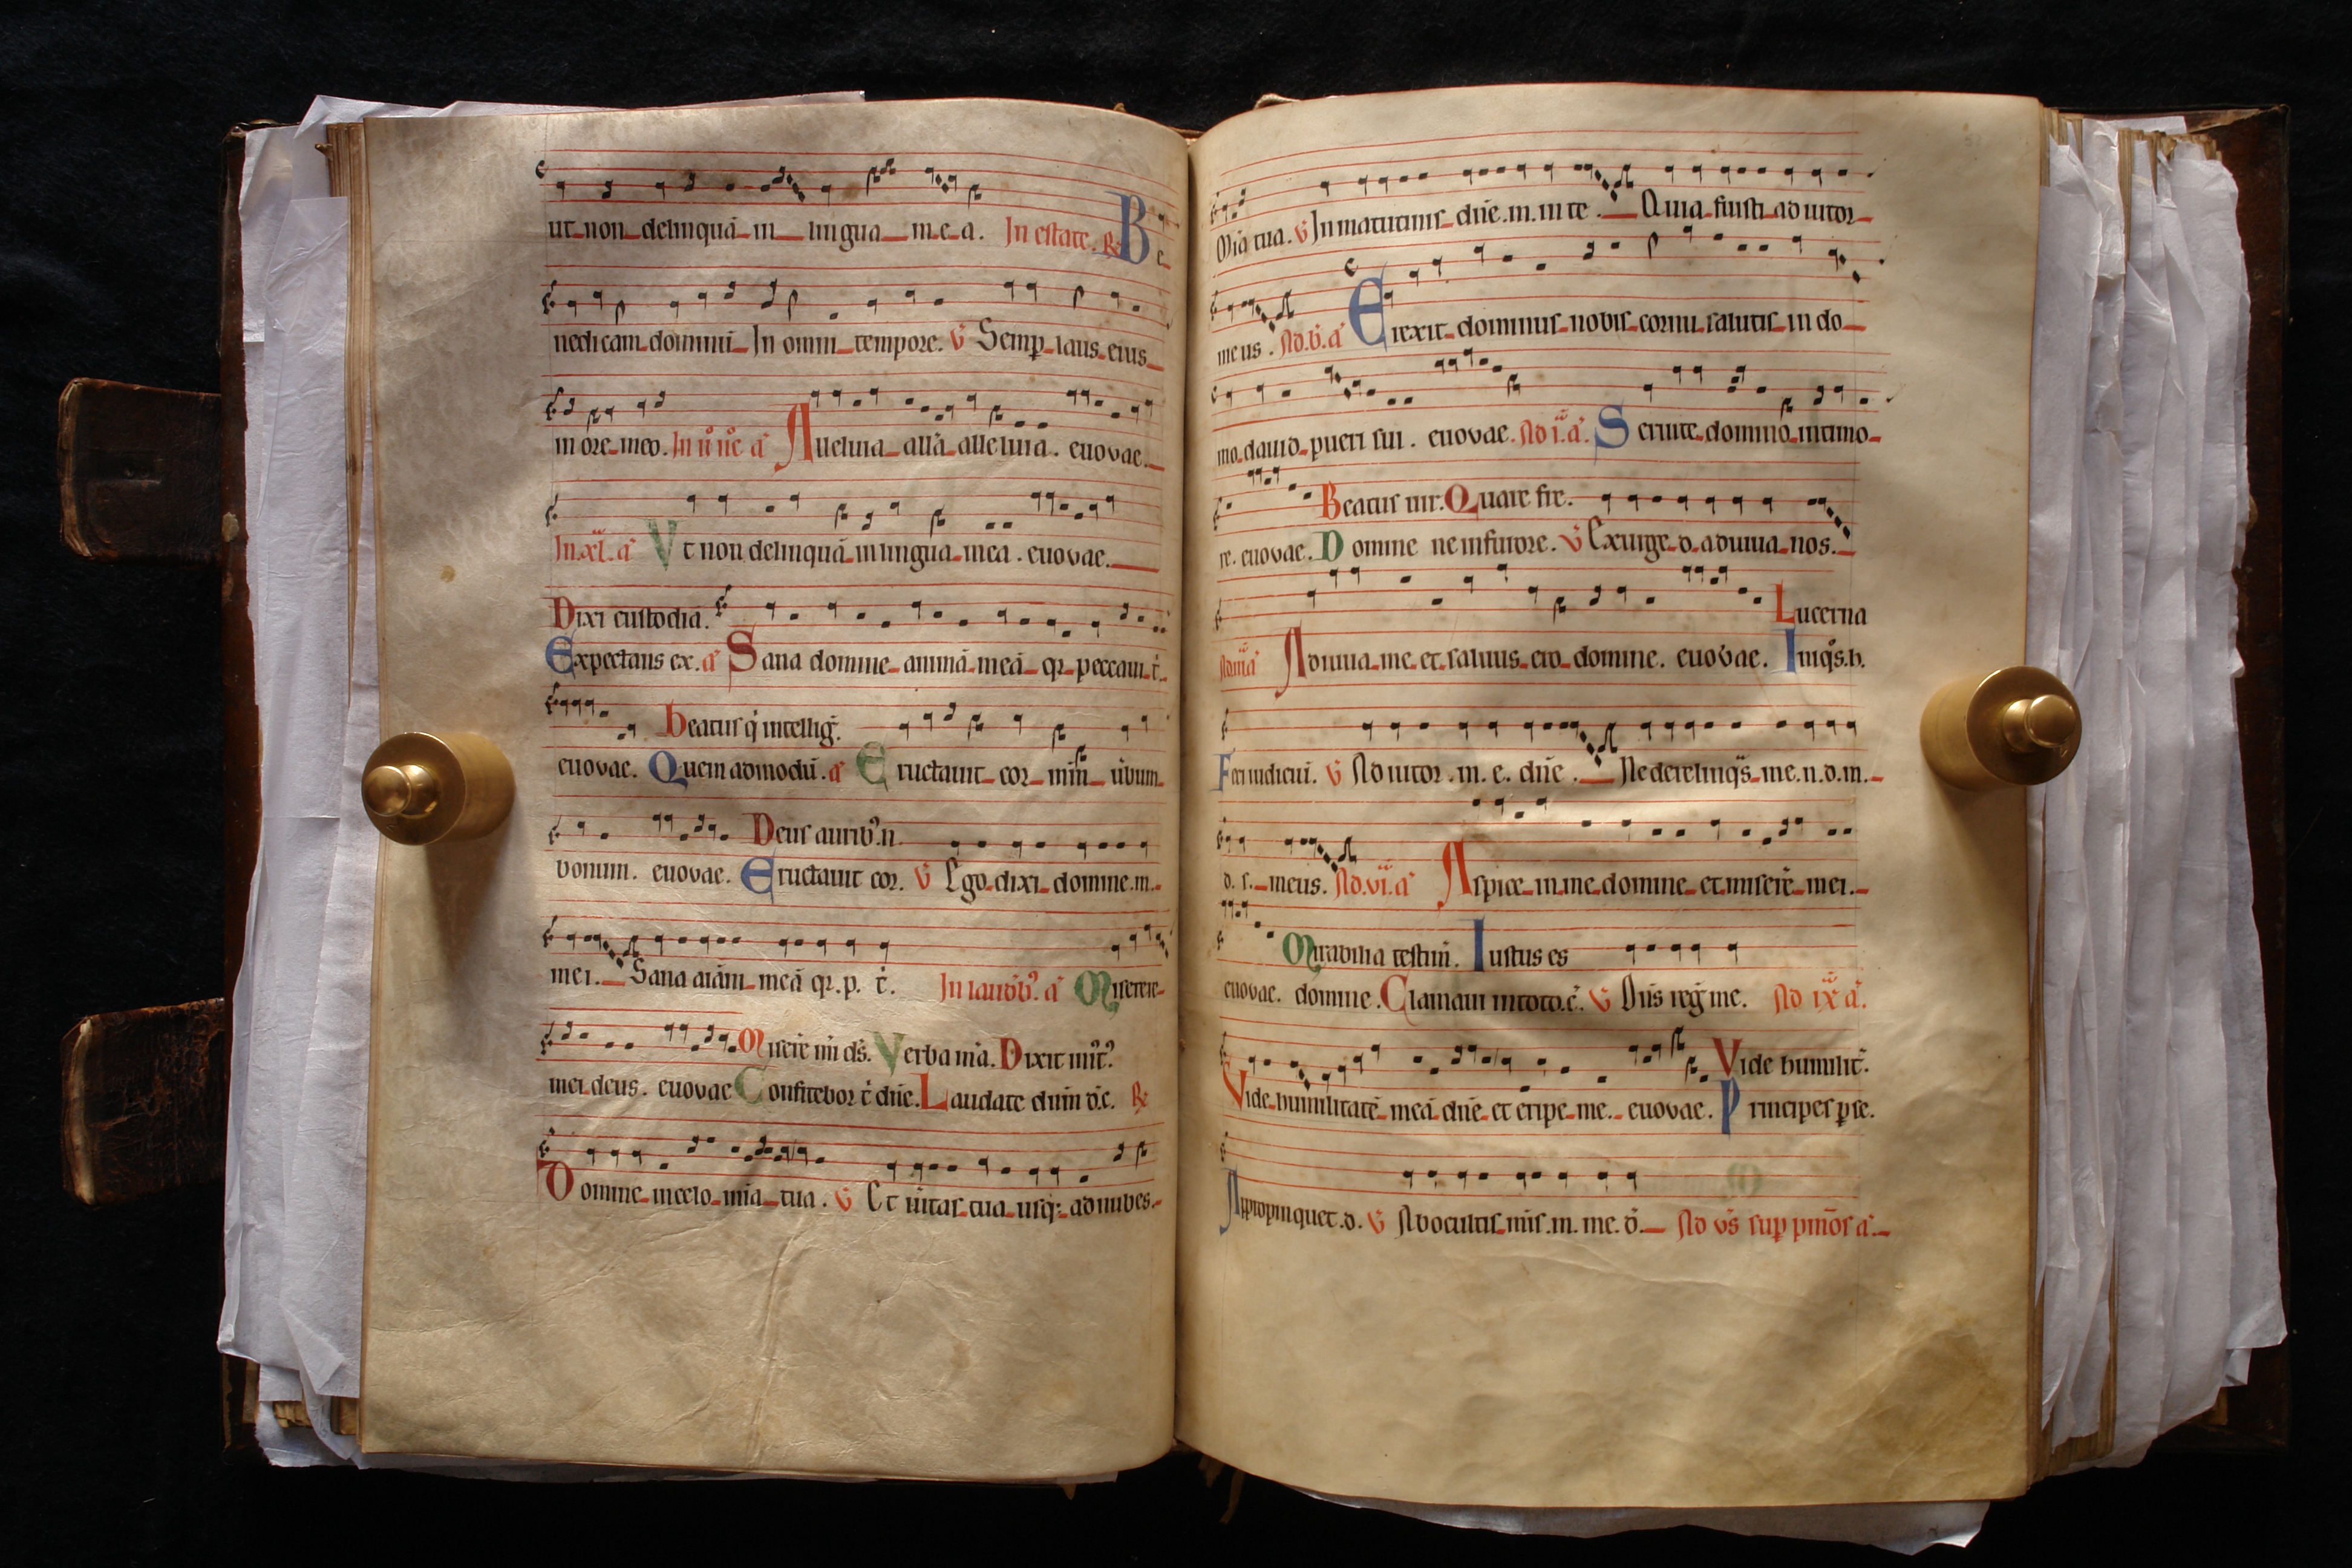 ut non delinquā in lingua mea. In estate. R Be
nedicam dominū In omni tempore. V Semp laus eius
in ore meo. In ii nc a Alleluia alla alleluia. euovae.
In xl. a Vt non delinquā in lingua mea. euovae.
Dixi custodiā.
Expectans ex. a Sana domine animā meā qr peccaui t.
Beatus q intellig.
euovae. Quem admodū. a Eructauit cor mm ūbum
Deus aurib n.
bonum. euovae. Eructauit cor. V Ego dixi domine. m.
mei. Sana aiam meā qr. p. t. In laudb. a Miserere
Misere mi ds. Verba mia. Dixit init
mei deus. euovae Confitebor t dne. Laudate dnm d. c. R
Domine in celo mia tua. V Et ūitas tua usq ad nubes.
Mia tua. V In matutinis dne. m. in te. Quia fuisti adiutor
meus. Ad. b. a Erexit dominus nobis cornu salutis in do
mo dauid pueri sui. euovae. Ad i. a. Seruite domino in timo
Beatus uir. Quare fre.
re. euovae. Domine ne in furore. V Exurge d. adiuua nos.
Lucerna
Ad iii a Adiuua me et saluus ero domine. euovae. Iniqs. h.
Feci iudiciū. V Adiutor. m. e. dne. Ne derelinqs me. n. d. m.
d. s. meus. Ad. vi. a Aspice in me domine et misere mei.
Mirabilia testim. Iustus es
euovae. domine. Clamaui in toto. c. V Dns reg me. Ad ix a.
Vide humilit.
Vide humilitatē meā dne et eripe me. euovae. Principes pse.
Appropinquet. d. V Ab ocultis mis. m. me. d. Ad vs sup pmos a